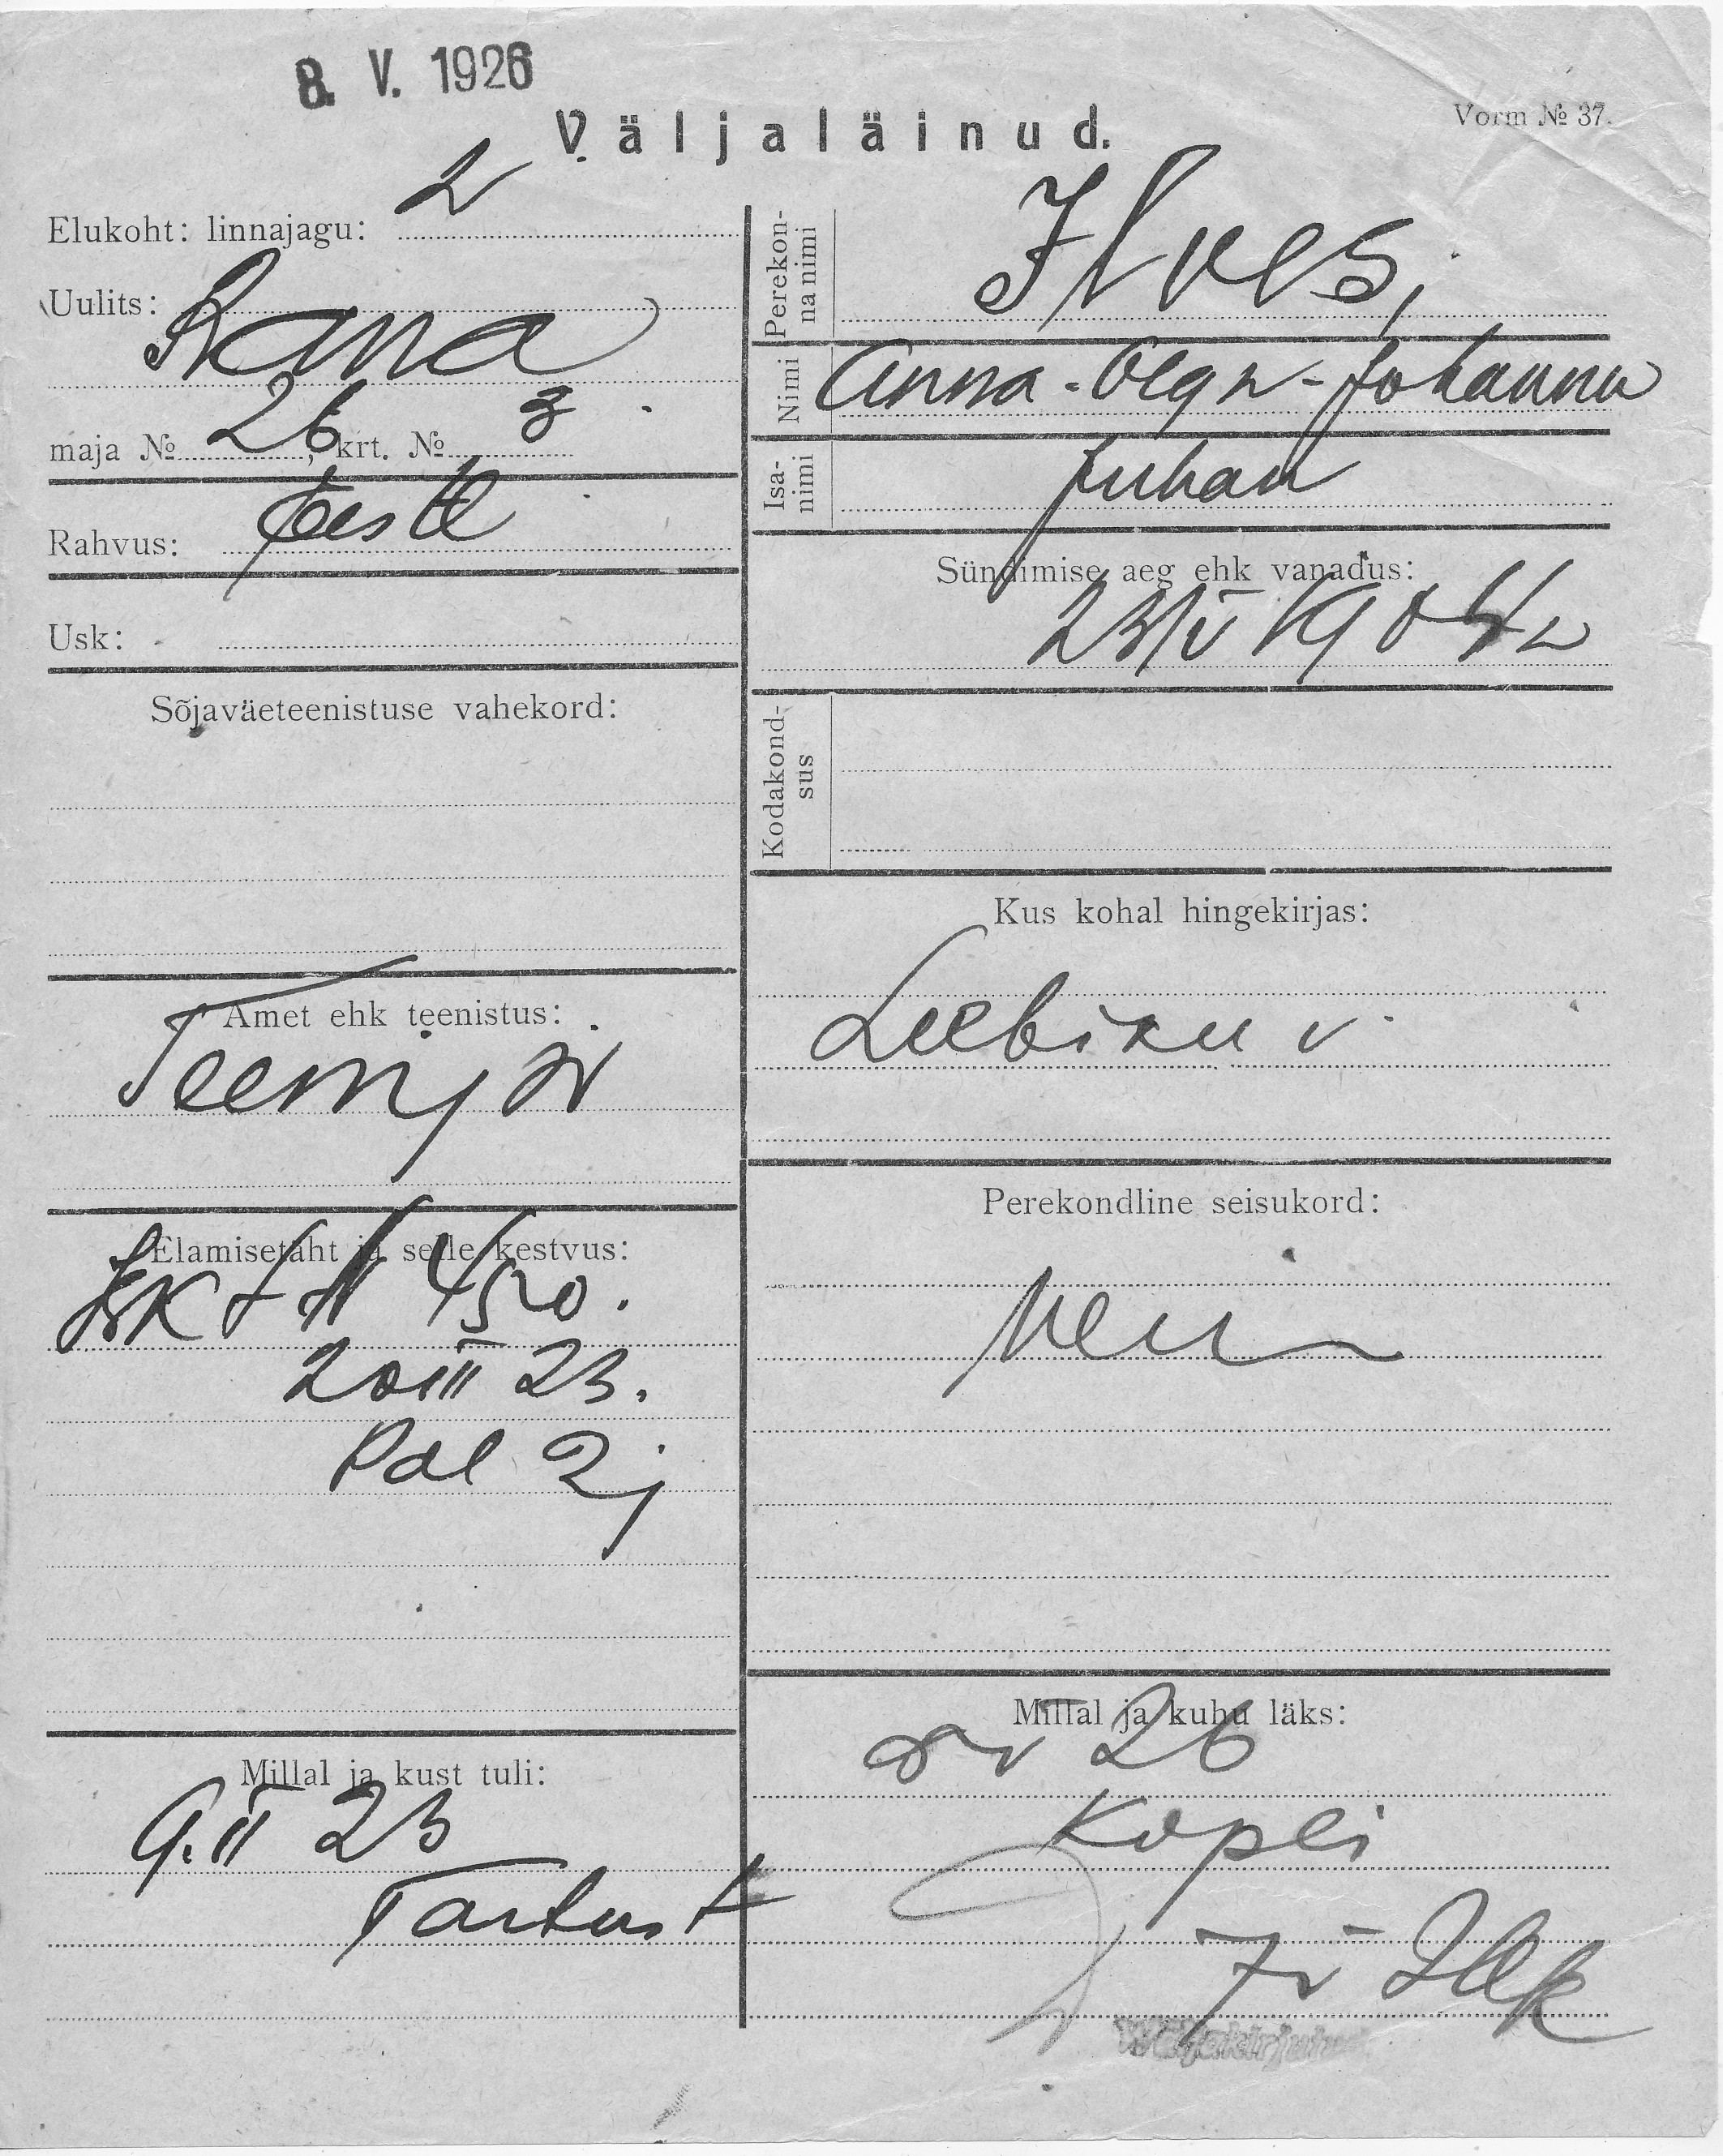 8. V. 1926
Väljaläinud.
Vorm № 37.
Elukoht: linnajagu: 2
Uulits:
maja № 26, krt. № 3
Rahvus: Eesti
Usk: -
Sõjaväeteenistuse vahekord:
Amet ehk teenistus:
Teenija
Elamisetäht ja selle kestvus:
450.
20 III 23.
Pol 2j
Millal ja kust tuli:
9. II 23
Tartust
Perekonna nimi
Ilves,
Nimi
Anna-Olga-Johanna
Isanimi
Juhan
Sündimise aeg ehk vanadus:
23/V 1904
Kodakondsus
Kus kohal hingekirjas:
Leebiku v.
Perekondline seisukord:
Neiu
Millal ja kuhu läks:
V 26
Kopli
Väljakirjutud